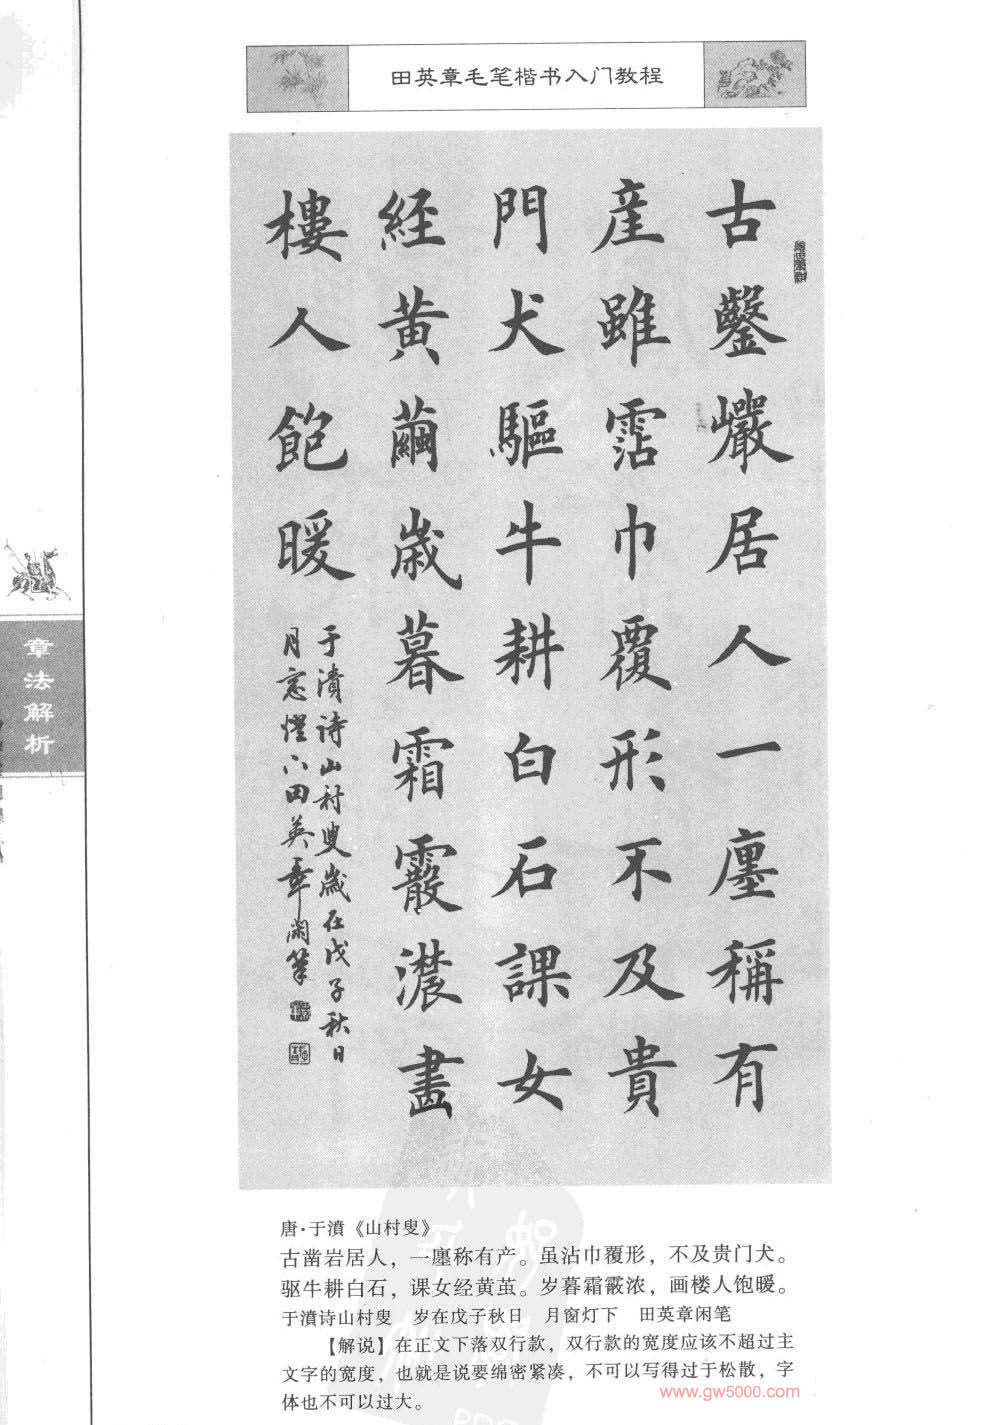 田英章毛笔楷书入门教程
古鑿巖居人一廛稱有
產雖霑巾覆形不及貴
門犬驅牛耕白石課女
經黃繭歲暮霜霰濃畫
樓人飽暖
于濆诗山村叟歲在戊子秋日
月窓燈下田英章闲笔
章法解析
唐·于濆《山村叟》
古凿岩居人，一廛称有产。虽沾巾覆形，不及贵门犬。
驱牛耕白石，课女经黄茧。岁暮霜霰浓，画楼人饱暖。
于濆诗山村叟 岁在戊子秋日 月窗灯下 田英章闲笔
【解说】在正文下落双行款，双行款的宽度应该不超过主
文字的宽度，也就是说要绵密紧凑，不可以写得过于松散，字
体也不可以过大。
www.gw5000.com